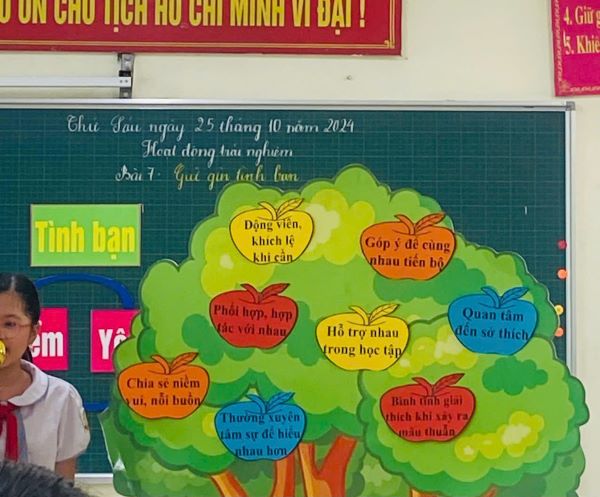 ƠN CHỦ TỊCH HỒ CHÍ MINH VĨ ĐẠI !
4. Giữ g
5. Khiê
Thứ Sáu ngày 25 tháng 10 năm 2024
Hoạt động trải nghiệm
Bài 7: Giữ gìn tình bạn
Tình bạn
em
Yê
Động viên,
khích lệ
khi cần
Góp ý để cùng
nhau tiến bộ
Phối hợp, hợp
tác với nhau
Hỗ trợ nhau
trong học tập
Quan tâm
đến sở thích
Chia sẻ niềm
vui, nỗi buồn
Thường xuyên
tâm sự để hiểu
nhau hơn
Bình tĩnh giải
thích khi xảy ra
mâu thuẫn